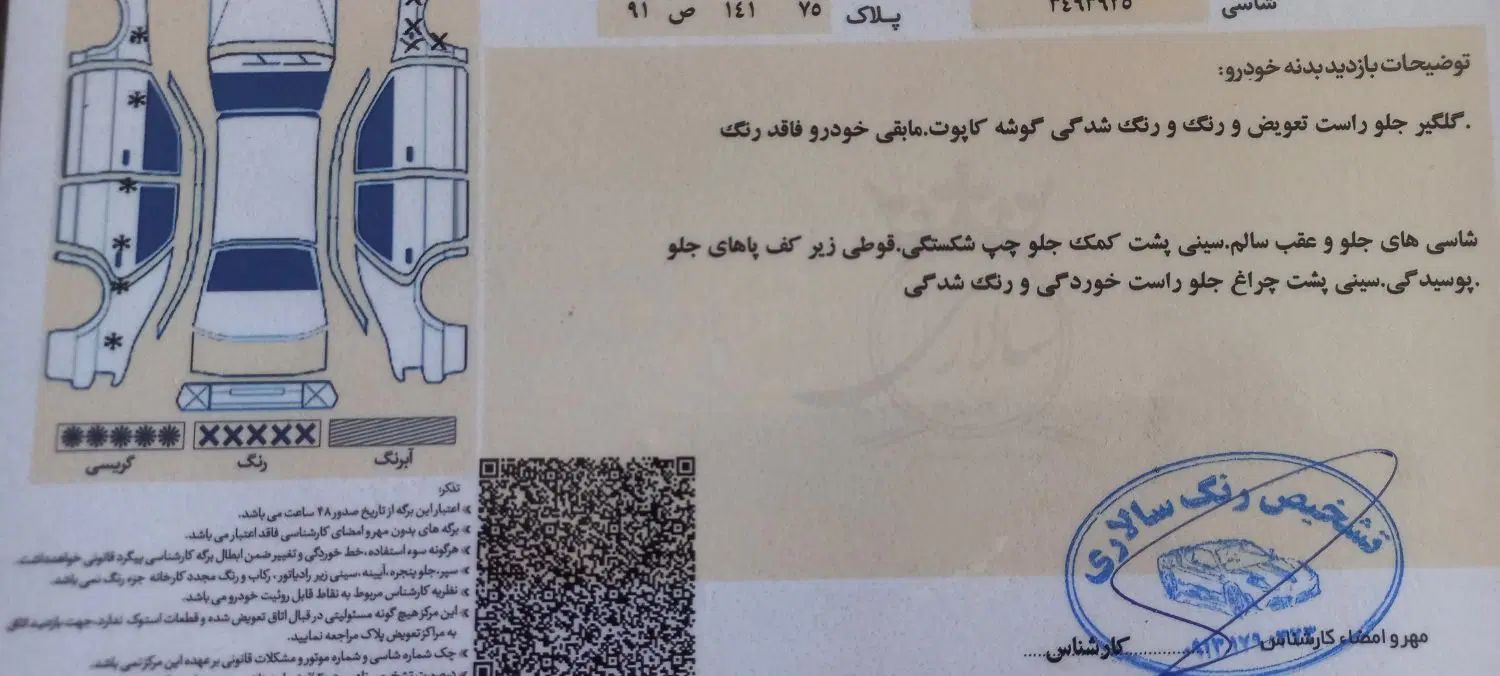 شاسی
پلاک ۷۵ ۱۴۱ ص ۹۱
توضیحات بازدید بدنه خودرو:
.گلگیر جلو راست تعویض و رنگ و رنگ شدگی گوشه کاپوت.مابقی خودرو فاقد رنگ
شاسی های جلو و عقب سالم.سینی پشت کمک جلو چپ شکستگی.قوطی زیر کف پاهای جلو
.پوسیدگی.سینی پشت چراغ جلو راست خوردگی و رنگ شدگی
آبرنگ
رنگ
گریسی
تذکر:
» اعتبار این برگه از تاریخ صدور ۴۸ ساعت می باشد.
» برگه های بدون مهر و امضای کارشناسی فاقد اعتبار می باشد.
» هرگونه سوء استفاده، خط خوردگی و تغییر ضمن ابطال برگه کارشناسی پیگرد قانونی خواهد داشت.
» سپر، جلو پنجره، آیینه، سینی زیر رادیاتور، رکاب و رنگ مجدد کارخانه جزء رنگ نمی باشد.
» نظریه کارشناس مربوط به نقاط قابل روئیت خودرو می باشد.
» این مرکز هیچ گونه مسئولیتی در قبال اتاق تعویض شده و قطعات استوک ندارد، جهت بازدید اتاق
به مراکز تعویض پلاک مراجعه نمایید.
» چک شماره شاسی و شماره موتور و مشکلات قانونی بر عهده این مرکز نمی باشد.
سالاری
تشخیص رنگ سالاری
مهر و امضاء کارشناس
کارشناس